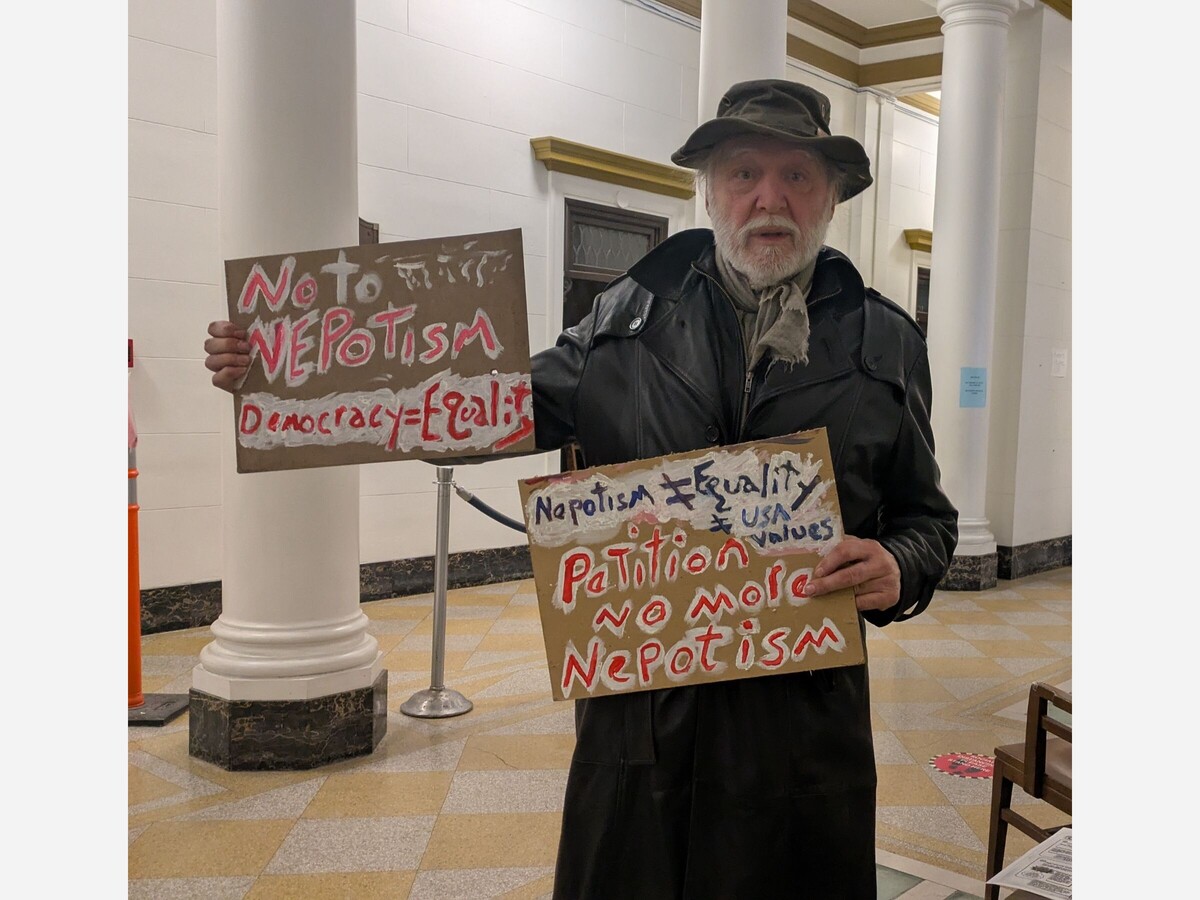 No to
NEPOTISM
Democracy=Equality
Nepotism ≠ Equality
≠ USA
values
Petition
No more
Nepotism